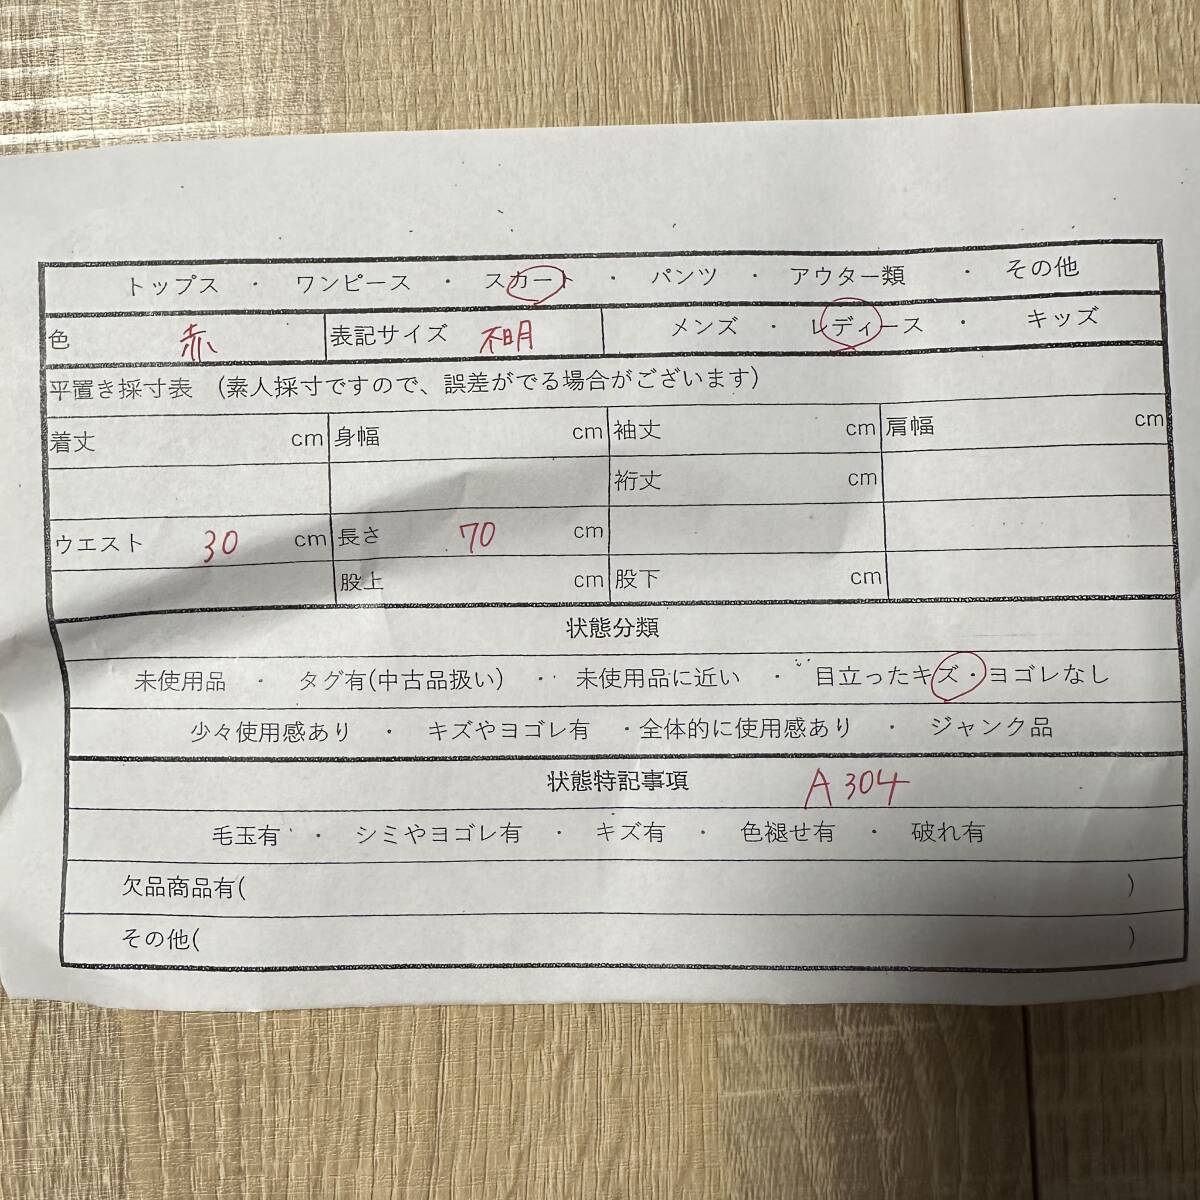 トップス ・ ワンピース ・ スカート ・ パンツ ・ アウター類 ・ その他
色 赤 表記サイズ 不明 メンズ ・ レディース ・ キッズ
平置き採寸表 （素人採寸ですので、誤差がでる場合がございます）
着丈 cm 身幅 cm 袖丈 cm 肩幅 cm
裄丈 cm
ウエスト 30 cm 長さ 70 cm
股上 cm 股下 cm
状態分類
未使用品 ・ タグ有(中古品扱い) ・ 未使用品に近い ・ 目立ったキズ・ヨゴレなし
少々使用感あり ・ キズやヨゴレ有 ・全体的に使用感あり ・ ジャンク品
状態特記事項 A304
毛玉有 ・ シミやヨゴレ有 ・ キズ有 ・ 色褪せ有 ・ 破れ有
欠品商品有( )
その他( )